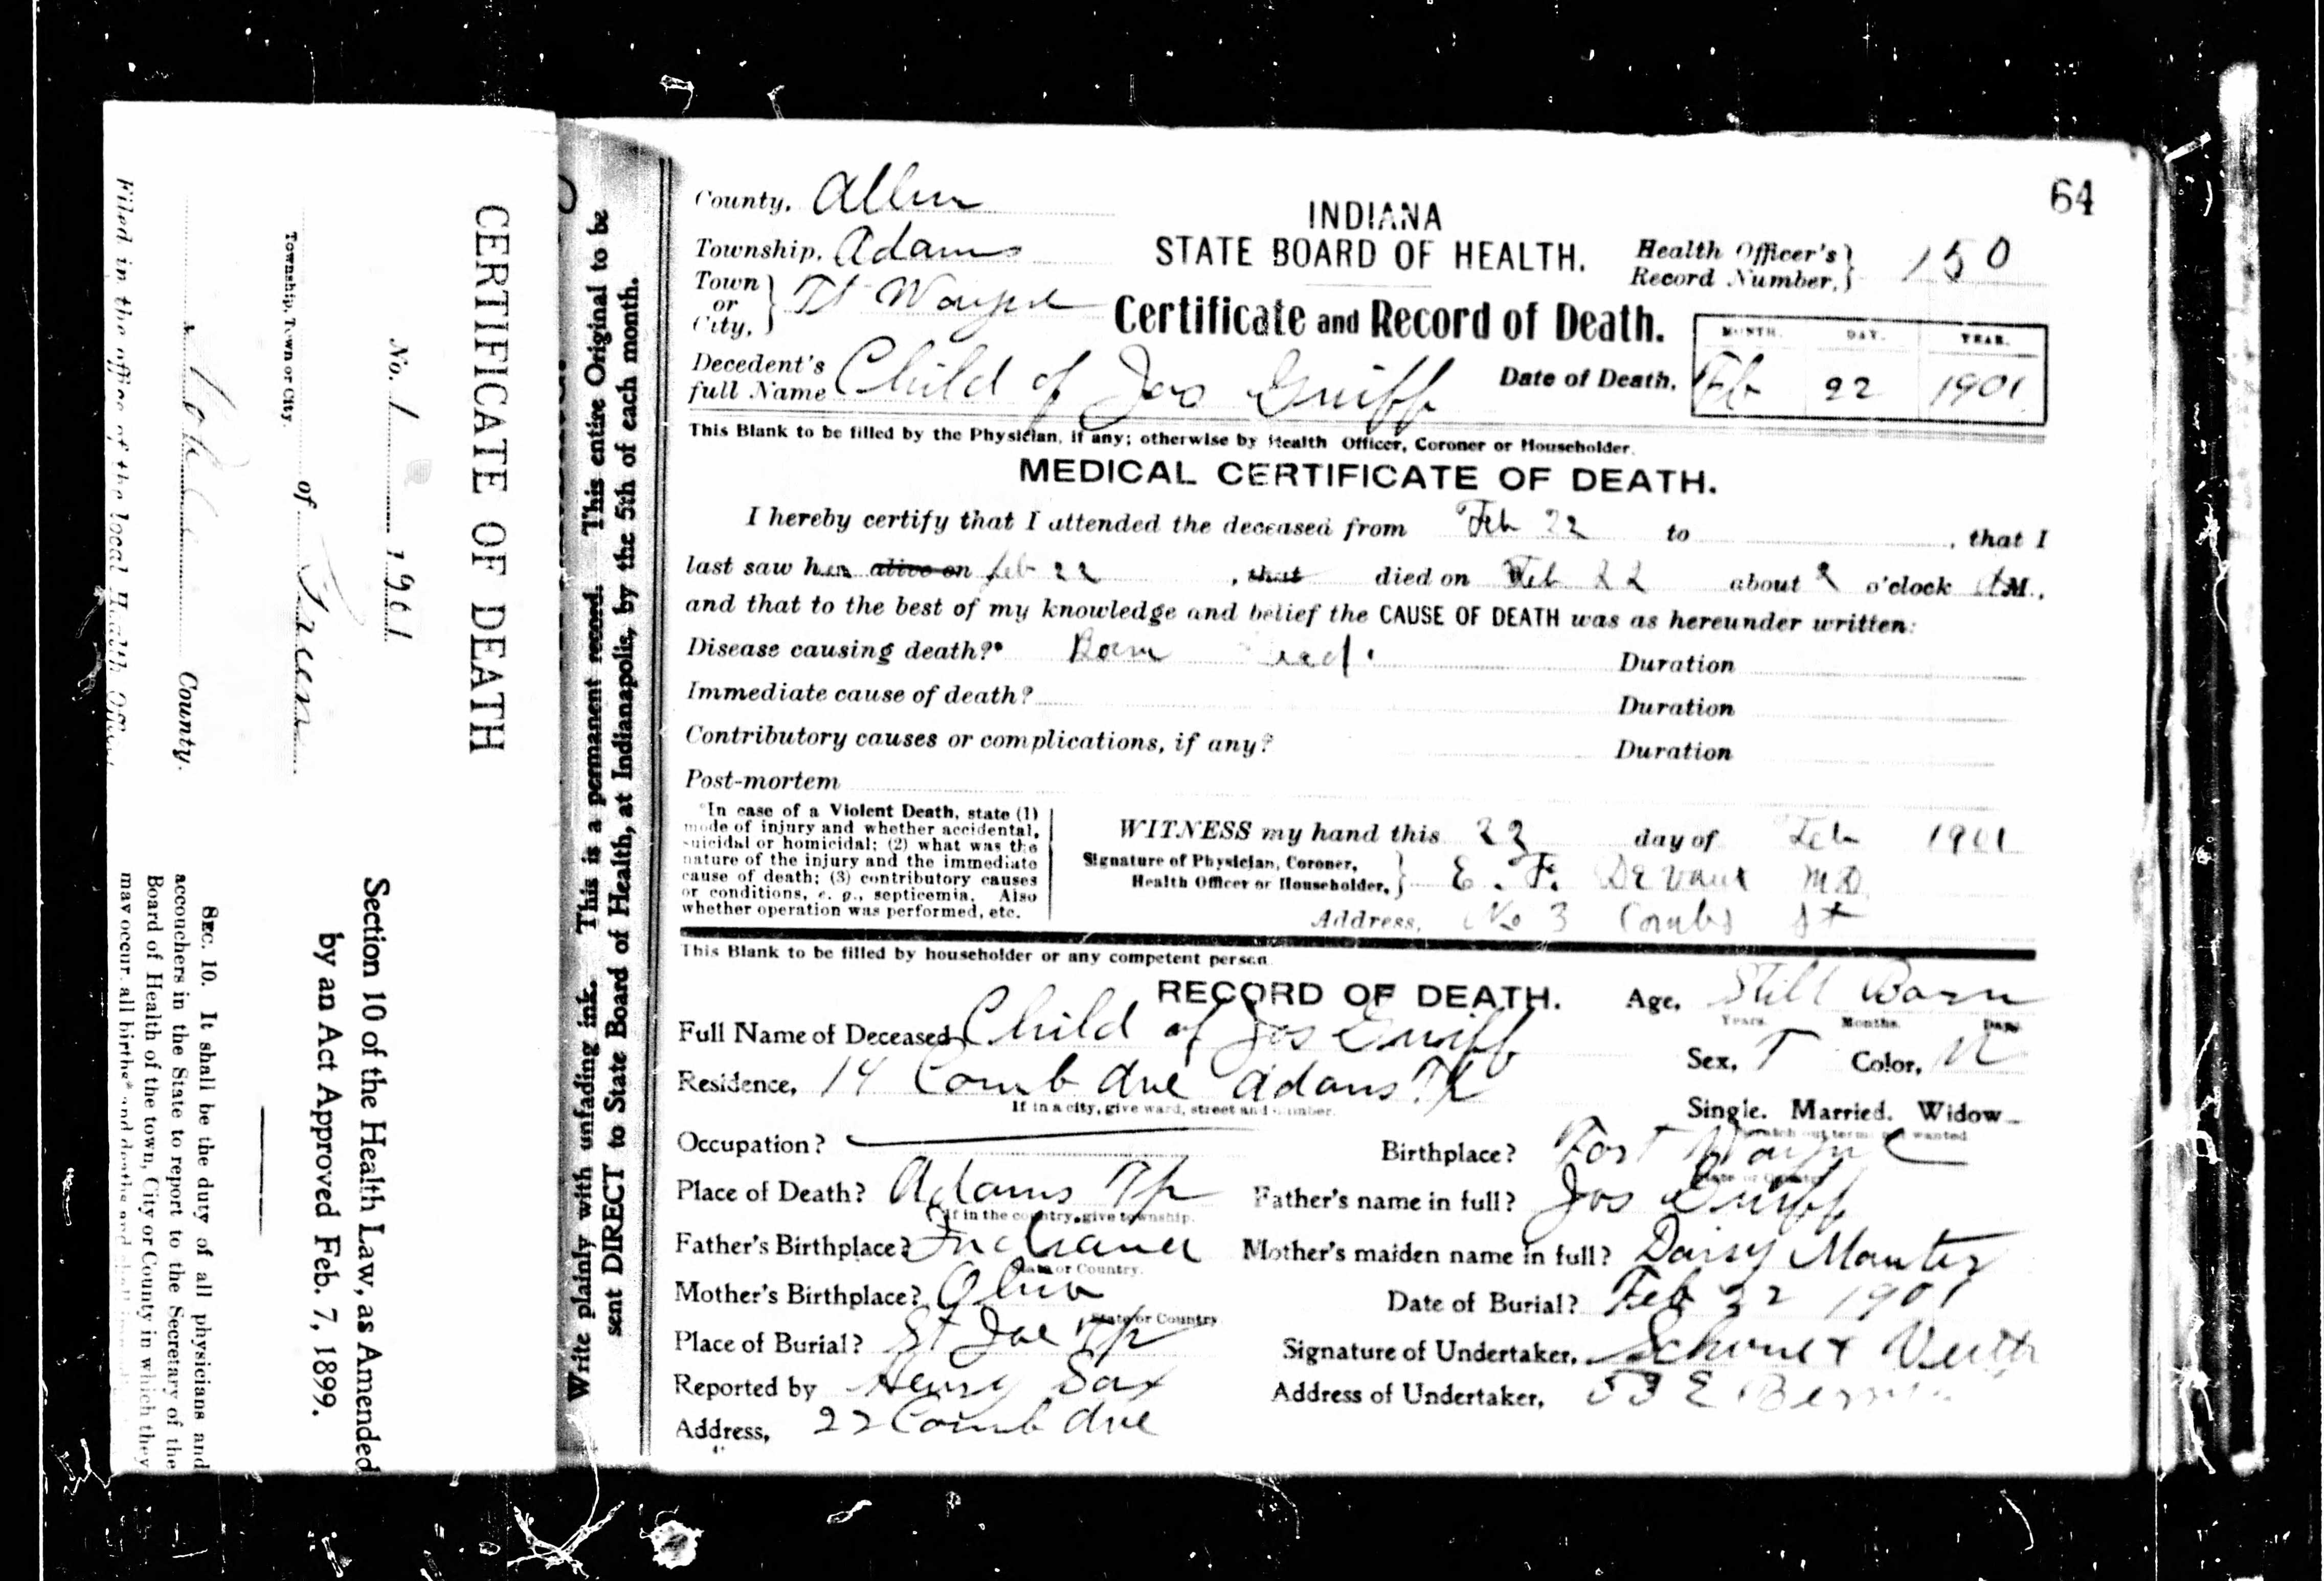 CERTIFICATE OF DEATH
No. 1 1901
Township, Town or City of
County.
Filed in the office of the local Health Officer
Section 10 of the Health Law, as Amended
by an Act Approved Feb. 7, 1899.
SEC. 10. It shall be the duty of all physicians and
accouchers in the State to report to the Secretary of the
Board of Health of the town, City or County in which they
may occur, all births* and deaths and
Write plainly with unfading ink. This is a permanent record. This entire Original to be
sent DIRECT to State Board of Health, at Indianapolis, by the 5th of each month.
64
County, Allen
INDIANA
Township, Adams
STATE BOARD OF HEALTH.
Health Officer's Record Number, 150
Town or City, Ft Wayne
Certificate and Record of Death.
MONTH. DAY. YEAR.
Decedent's full Name Child of Jos Gruiff Date of Death, Feb 22 1901
This Blank to be filled by the Physician, if any; otherwise by Health Officer, Coroner or Householder.
MEDICAL CERTIFICATE OF DEATH.
I hereby certify that I attended the deceased from Feb 22 to , that I
last saw her alive on feb 22 , that died on Feb 22 about 2 o'clock A M.,
and that to the best of my knowledge and belief the CAUSE OF DEATH was as hereunder written:
Disease causing death?* Born Dead. Duration
Immediate cause of death? Duration
Contributory causes or complications, if any? Duration
Post-mortem
*In case of a Violent Death, state (1)
mode of injury and whether accidental,
suicidal or homicidal; (2) what was the
nature of the injury and the immediate
cause of death; (3) contributory causes
or conditions, e. g., septicemia. Also
whether operation was performed, etc.
WITNESS my hand this 22 day of Feb 1901
Signature of Physician, Coroner,
Health Officer or Householder, E. F. DeVaux MD
Address, No 3 Combs St
This Blank to be filled by householder or any competent person.
RECORD OF DEATH.
Age, Still Born
Years. Months. Days.
Full Name of Deceased Child of Jos Gruiff
Sex, F Color, W
Residence, 14 Comb Ave Adams Tp
If in a city, give ward, street and number.
Single. Married. Widow
Scratch out terms not wanted.
Occupation?
Birthplace? Fort Wayne
State or Country.
Place of Death? Adams Tp
If in the country, give township.
Father's name in full? Jos Gruiff
Father's Birthplace? Indiana
State or Country.
Mother's maiden name in full? Daisy Manter
Mother's Birthplace? Ohio
State or Country
Date of Burial? Feb 22 1901
Place of Burial? St Joe Tp
Signature of Undertaker,
Reported by Henry Sax
Address of Undertaker, 53 E
Address, 22 Comb Ave